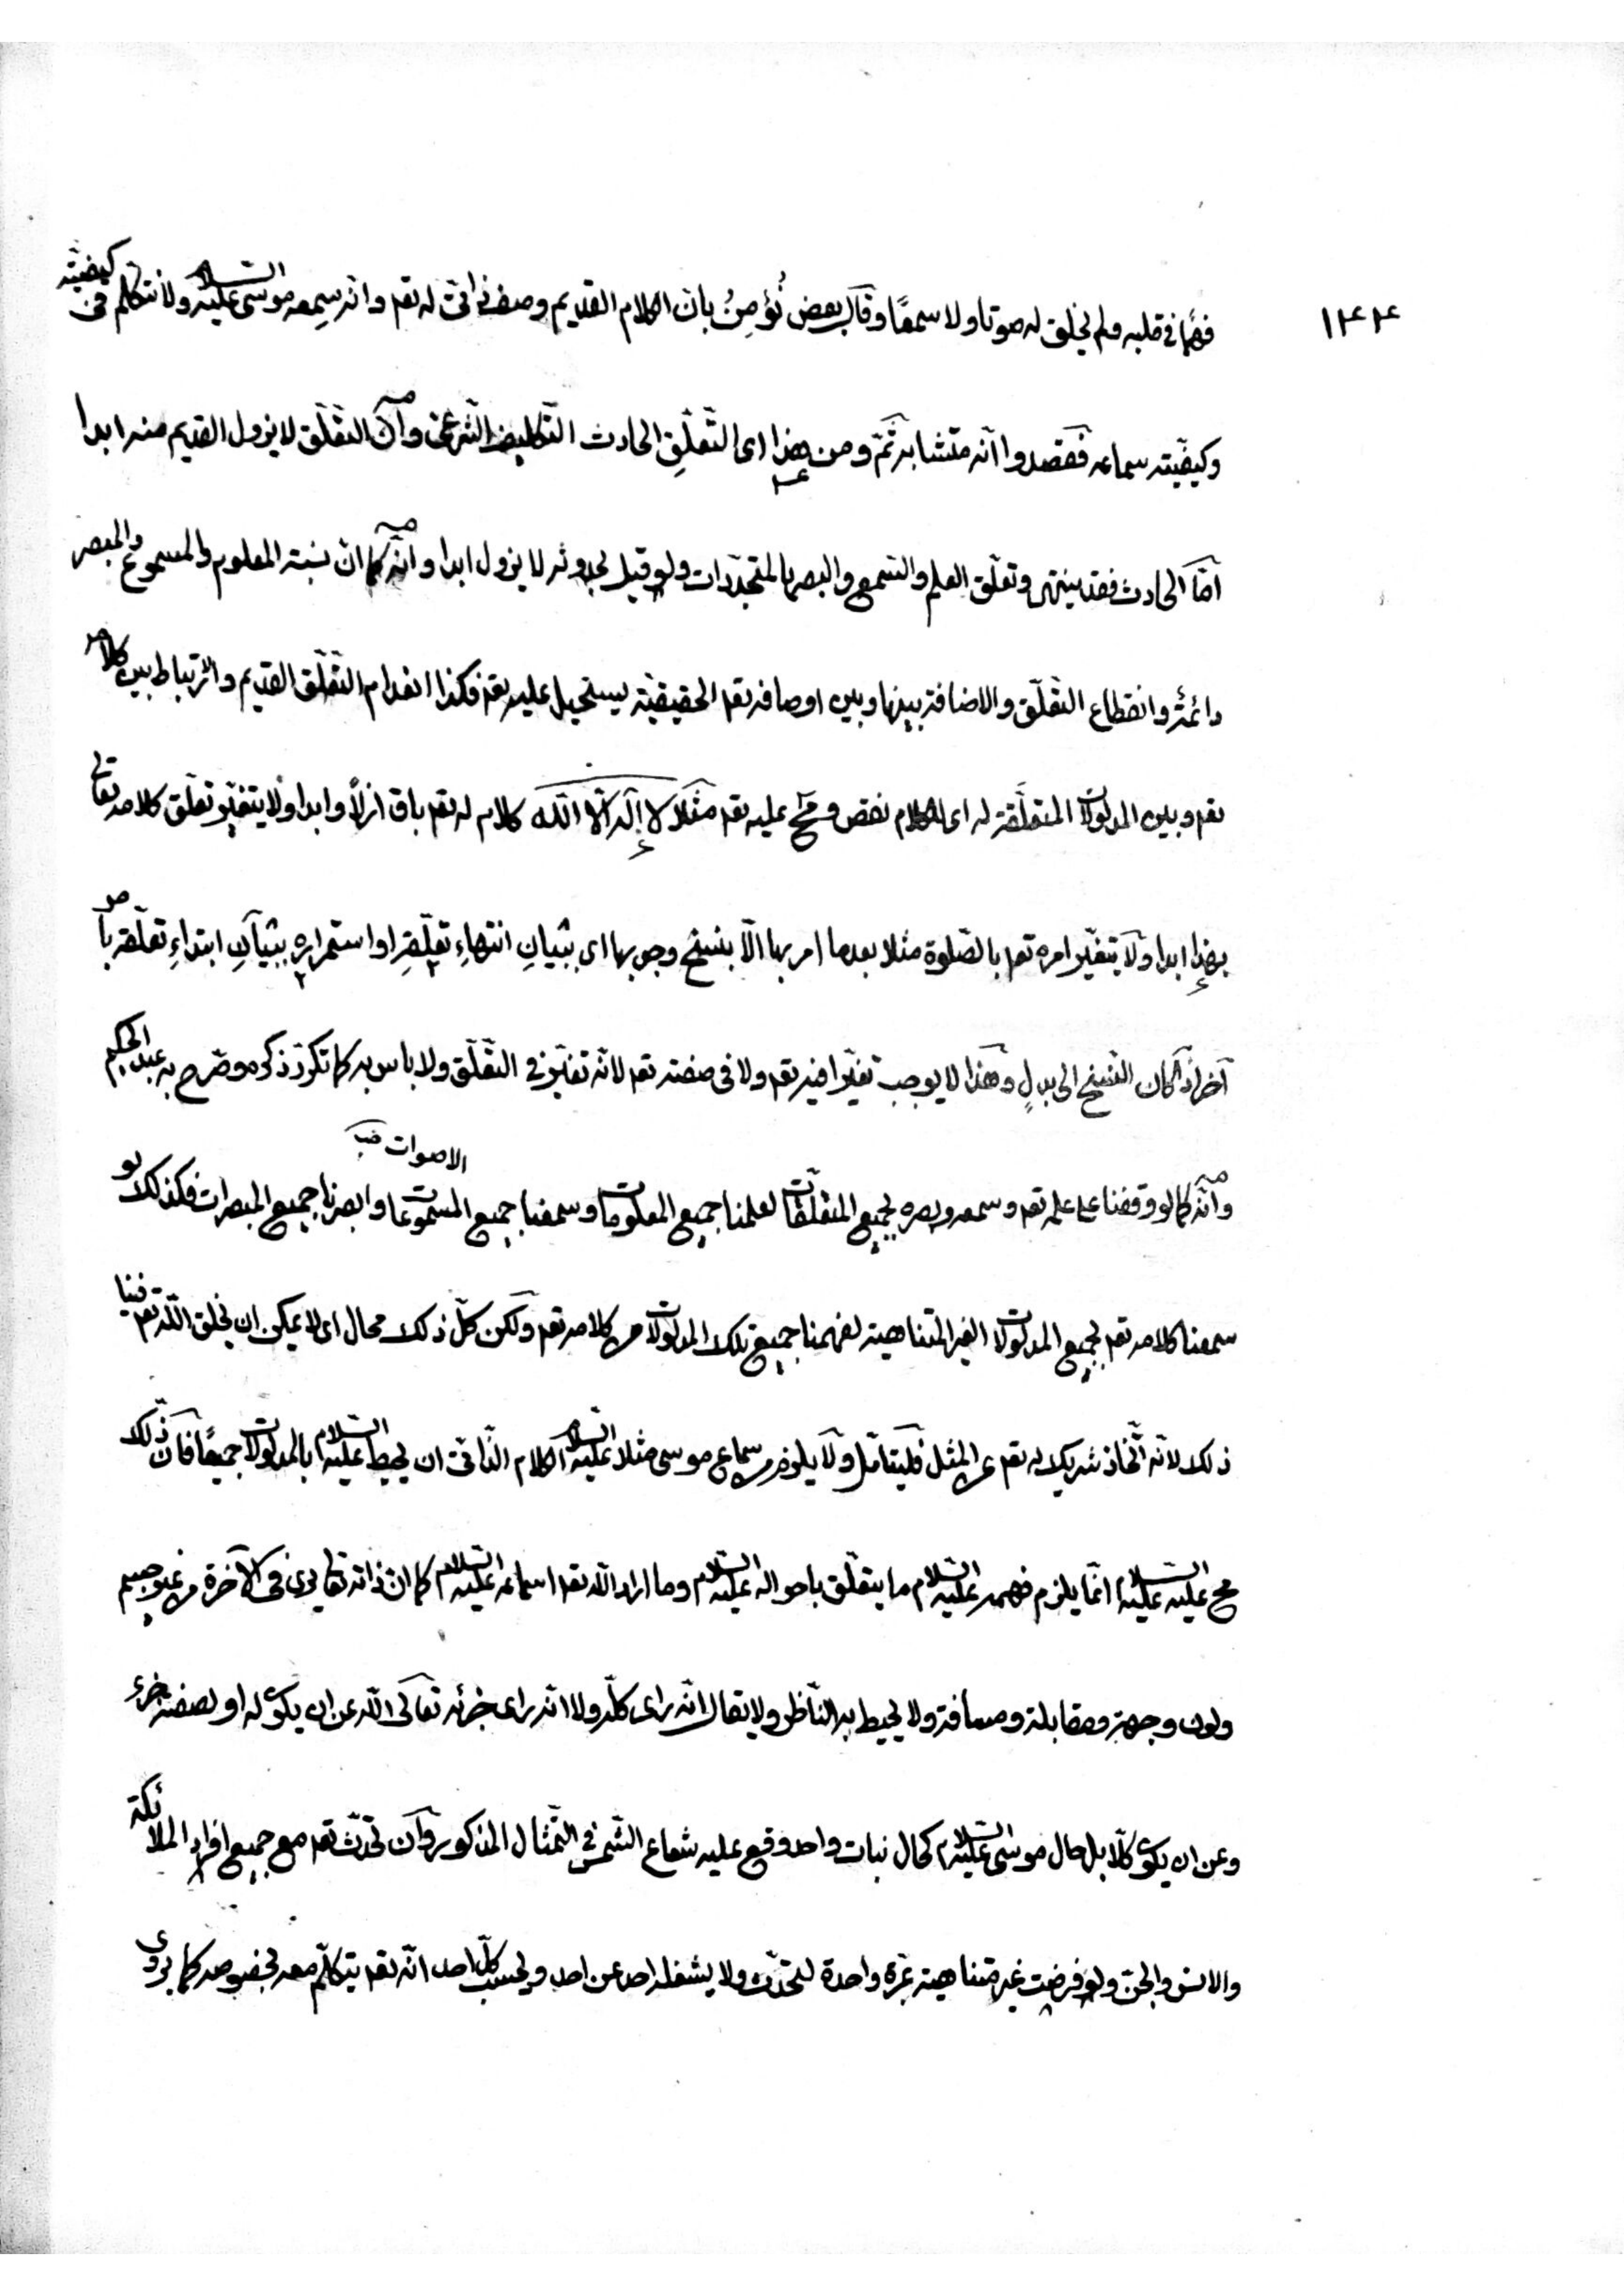 ١٤٤
فهمًا في قلبه ولم يخلق له صوتا ولا سمعًا وقال بعض نُؤمِنُ بان الكلام القديم وصف ذاتىّ له تعـ وانه سمِعه موسى عليه السلام ولا نتكلم فى كيفيته
وكيفيّته سماعه فقصدوا انّه متشابه ثمّ ومن هذا اى التّعلّقِ الحادث التّكليف الشّرعىّ وانّ التعلّق لا يزول القديم منه ابدا
امّا الحادث فقد ينتهى وتعلّق العلم والسّمع والبصر بالمتجدّدات ولو قيل بحدوثه لا يزول ابدا وانّه كما انّ نسبته المعلوم والمسموع والمبصر
دائمة وانقطاع التعلّق والاضافة بينها وبين اوصافه تعـ الحقيقيّة يستحيل عليه تعـ فكذا انعدام التعلّق القديم والارتباط بين كلامه
تعـ وبين المدلولات المتعلّقة له اى الكلام نقص ومحـ عليه تعـ مثلا لا اله الا الله كلام له تعـ باق ازلاً وابدا ولا يتغيّر تعلّق كلامه تعالى
بهذا ابدا ولا يتغيّر امره تعـ بالصّلوة مثلا بعدما امر بها الّا بنسخ وجوبها اى ببيانِ انتهاءِ تعلّقِه او استمراره ببيانِ ابتداءِ تعلّقه بامر
آخر اذا كان النسخ الى بدلٍ وهذا لا يوجب تغيّرا فيه تعـ ولا فى صفته تعـ لانّه تغيّر فى التعلّق ولا باس به كما تكرّر ذكره وصرّح به عبد الحكيم
وانّه كما لو وقفنا على علمه تعـ وسمعه وبصره بجميع المتعلّقات لعلمنا جميع المعلومات وسمعنا جميع المسموعات الاصوات وابصرنا جميع المبصرات فكذلك لو
سمعنا كلامه تعـ بجميع المدلولات الغير المتناهية لفهمنا جميع تلك المدلولات من كلامه تعـ ولكن كلّ ذلك محال اى لا يمكن ان يخلق اللّه تعـ فينا
ذلك لانّه اتّخاذ شريك له تعـ عن المثل فليتامّل ولا يلزم من سماع موسى مثلا عليه السلام الكلام الذّاتىّ ان يحيط عليه السلام بالمدلولات جميعًا فانّ ذلك
محـ عليه عليه السلام انّما يلزم فهمه عليه السلام ما يتعلّق باحواله عليه السلام وما اراد اللّه تعـ اسماعه عليه السلام كما انّ ذاته تعالى يرى فى الآخرة من غير جسم
ولون وجهة ومقابلة ومسافة ولا يحيط به النّاظر ولا يقال انّه راى كلّه ولا انّه راى جزئه تعالى اللّه عن ان يكون له او لصفته جزء
وعن ان يكون كلّا بل حال موسى عليه السلام كحال نبات واحد وقع عليه شعاع الشّمس فى التّمثال المذكور وانّ تحدّث تعـ مع جميع افراد الملائكة
والانس والجنّ ولو فرضت غير متناهية بمرّة واحدة لتحدّث ولا يشغله احد عن احد ويحسب كلّ احد انّه تعـ يتكلّم معه بخصوصه كما يروى